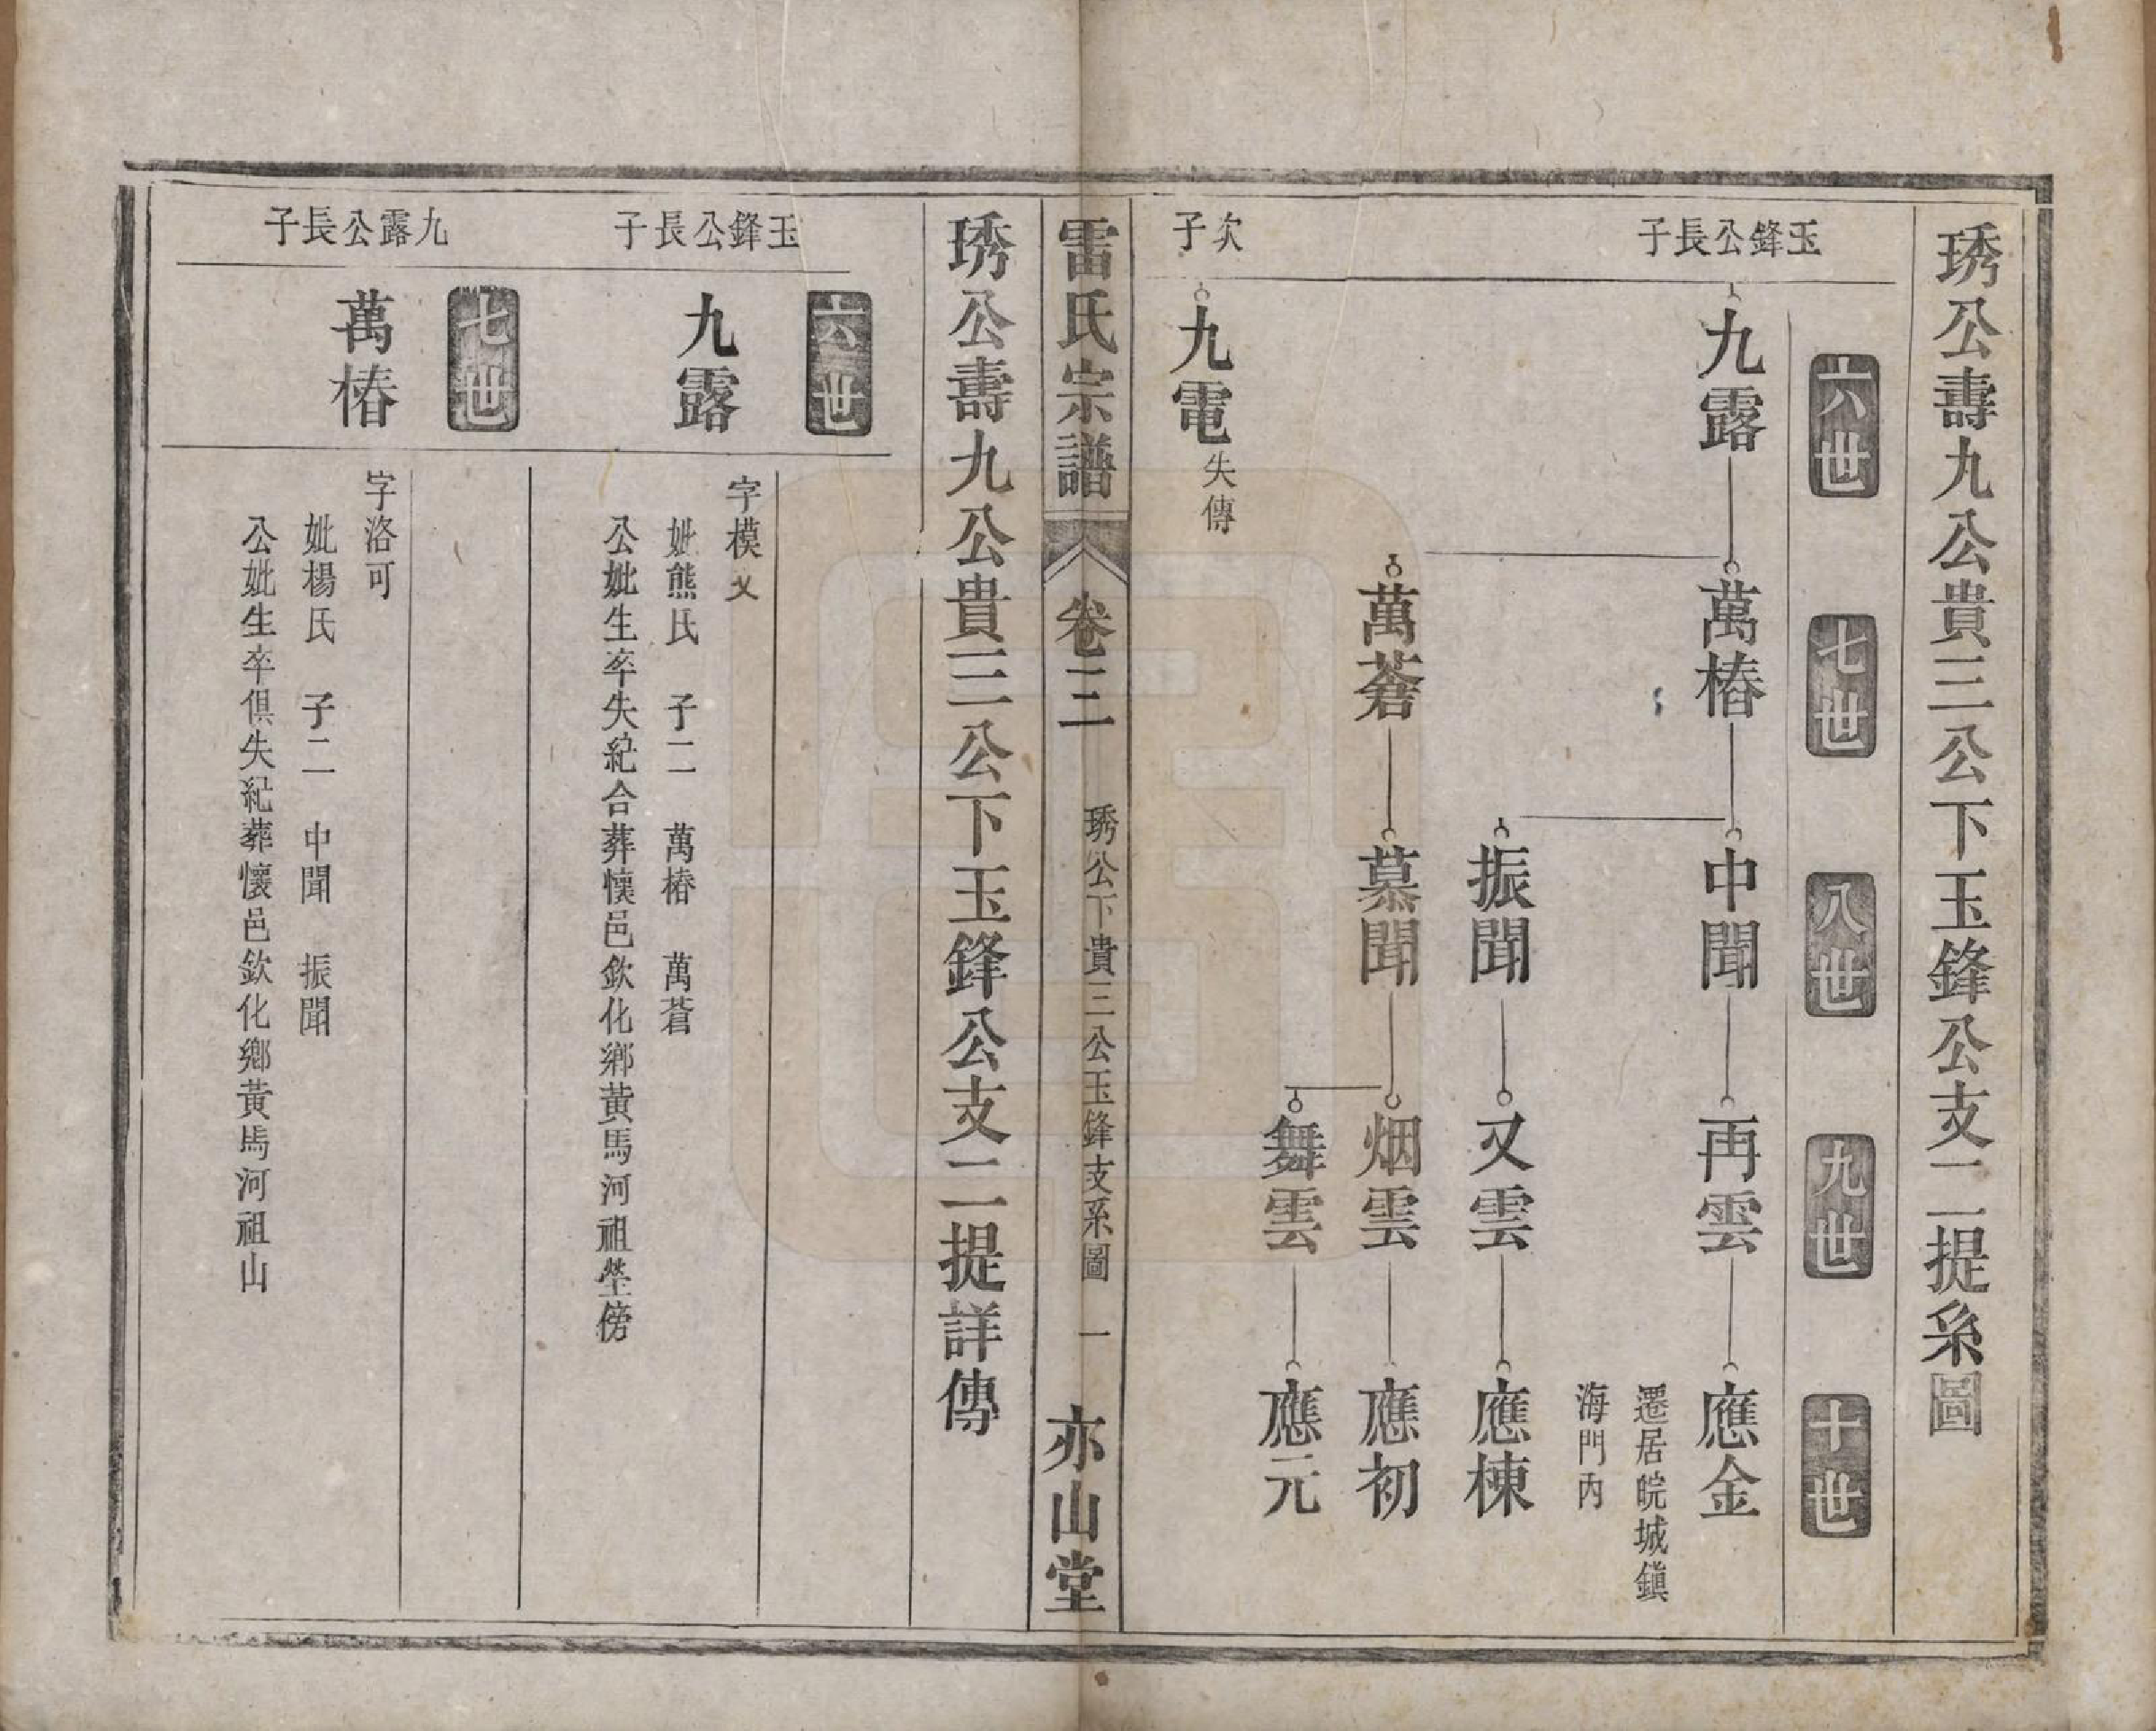 琇公壽九公貴三公下玉鋒公支二提系圖
六世
七世
八世
九世
十世
玉鋒公長子
九露
萬椿
中聞
再雲
應金
遷居皖城鎮
海門內
振聞
又雲
應棟
萬蒼
慕聞
烟雲
應初
舞雲
應元
次子
九電
失傳
雷氏宗譜
卷三
琇公下貴三公玉鋒支系圖
一
亦山堂
琇公壽九公貴三公下玉鋒公支二提詳傳
六世
玉鋒公長子
九露
字模义
妣熊氏 子二 萬椿 萬蒼
公妣生卒失紀合葬懷邑欽化鄉黃馬河祖塋傍
七世
九露公長子
萬椿
字洛可
妣楊氏 子二 中聞 振聞
公妣生卒俱失紀葬懷邑欽化鄉黃馬河祖山